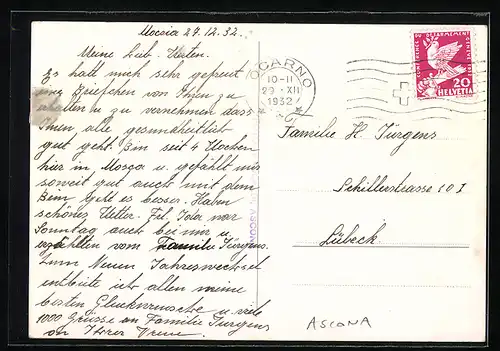 Moscia 29.12.32.
Meine Lieb. Kerten.
Es hatt mich sehr gefreut
ein Briefchen von Ihnen zu
erhalten u zu vernehmen dass
Ihnen alle gesundheitlich
gut geht. Bin seit 4 Wochen
hier in Moscia u gefählt mir
soweit gut auch mit dem
Bein geht es besser. Haben
schönes Wetter. Frl. war
Sonntag auch bei mir u
erzählten vom Familie Jürgens.
Zum Neuen Jahreswechsel
entbiete ich allen meine
besten Glückwünsche u. viele
1000 Grüsse an Familie Jürgens
an Ihrer Irene.
LOCARNO
10-11
29. XII
1932
CONFERENCE DU DESARMEMENT GENEVE 1932
20
HELVETIA
Familie H. Jürgens
Schillerstrasse 10 I
Lübeck.
ASCONA